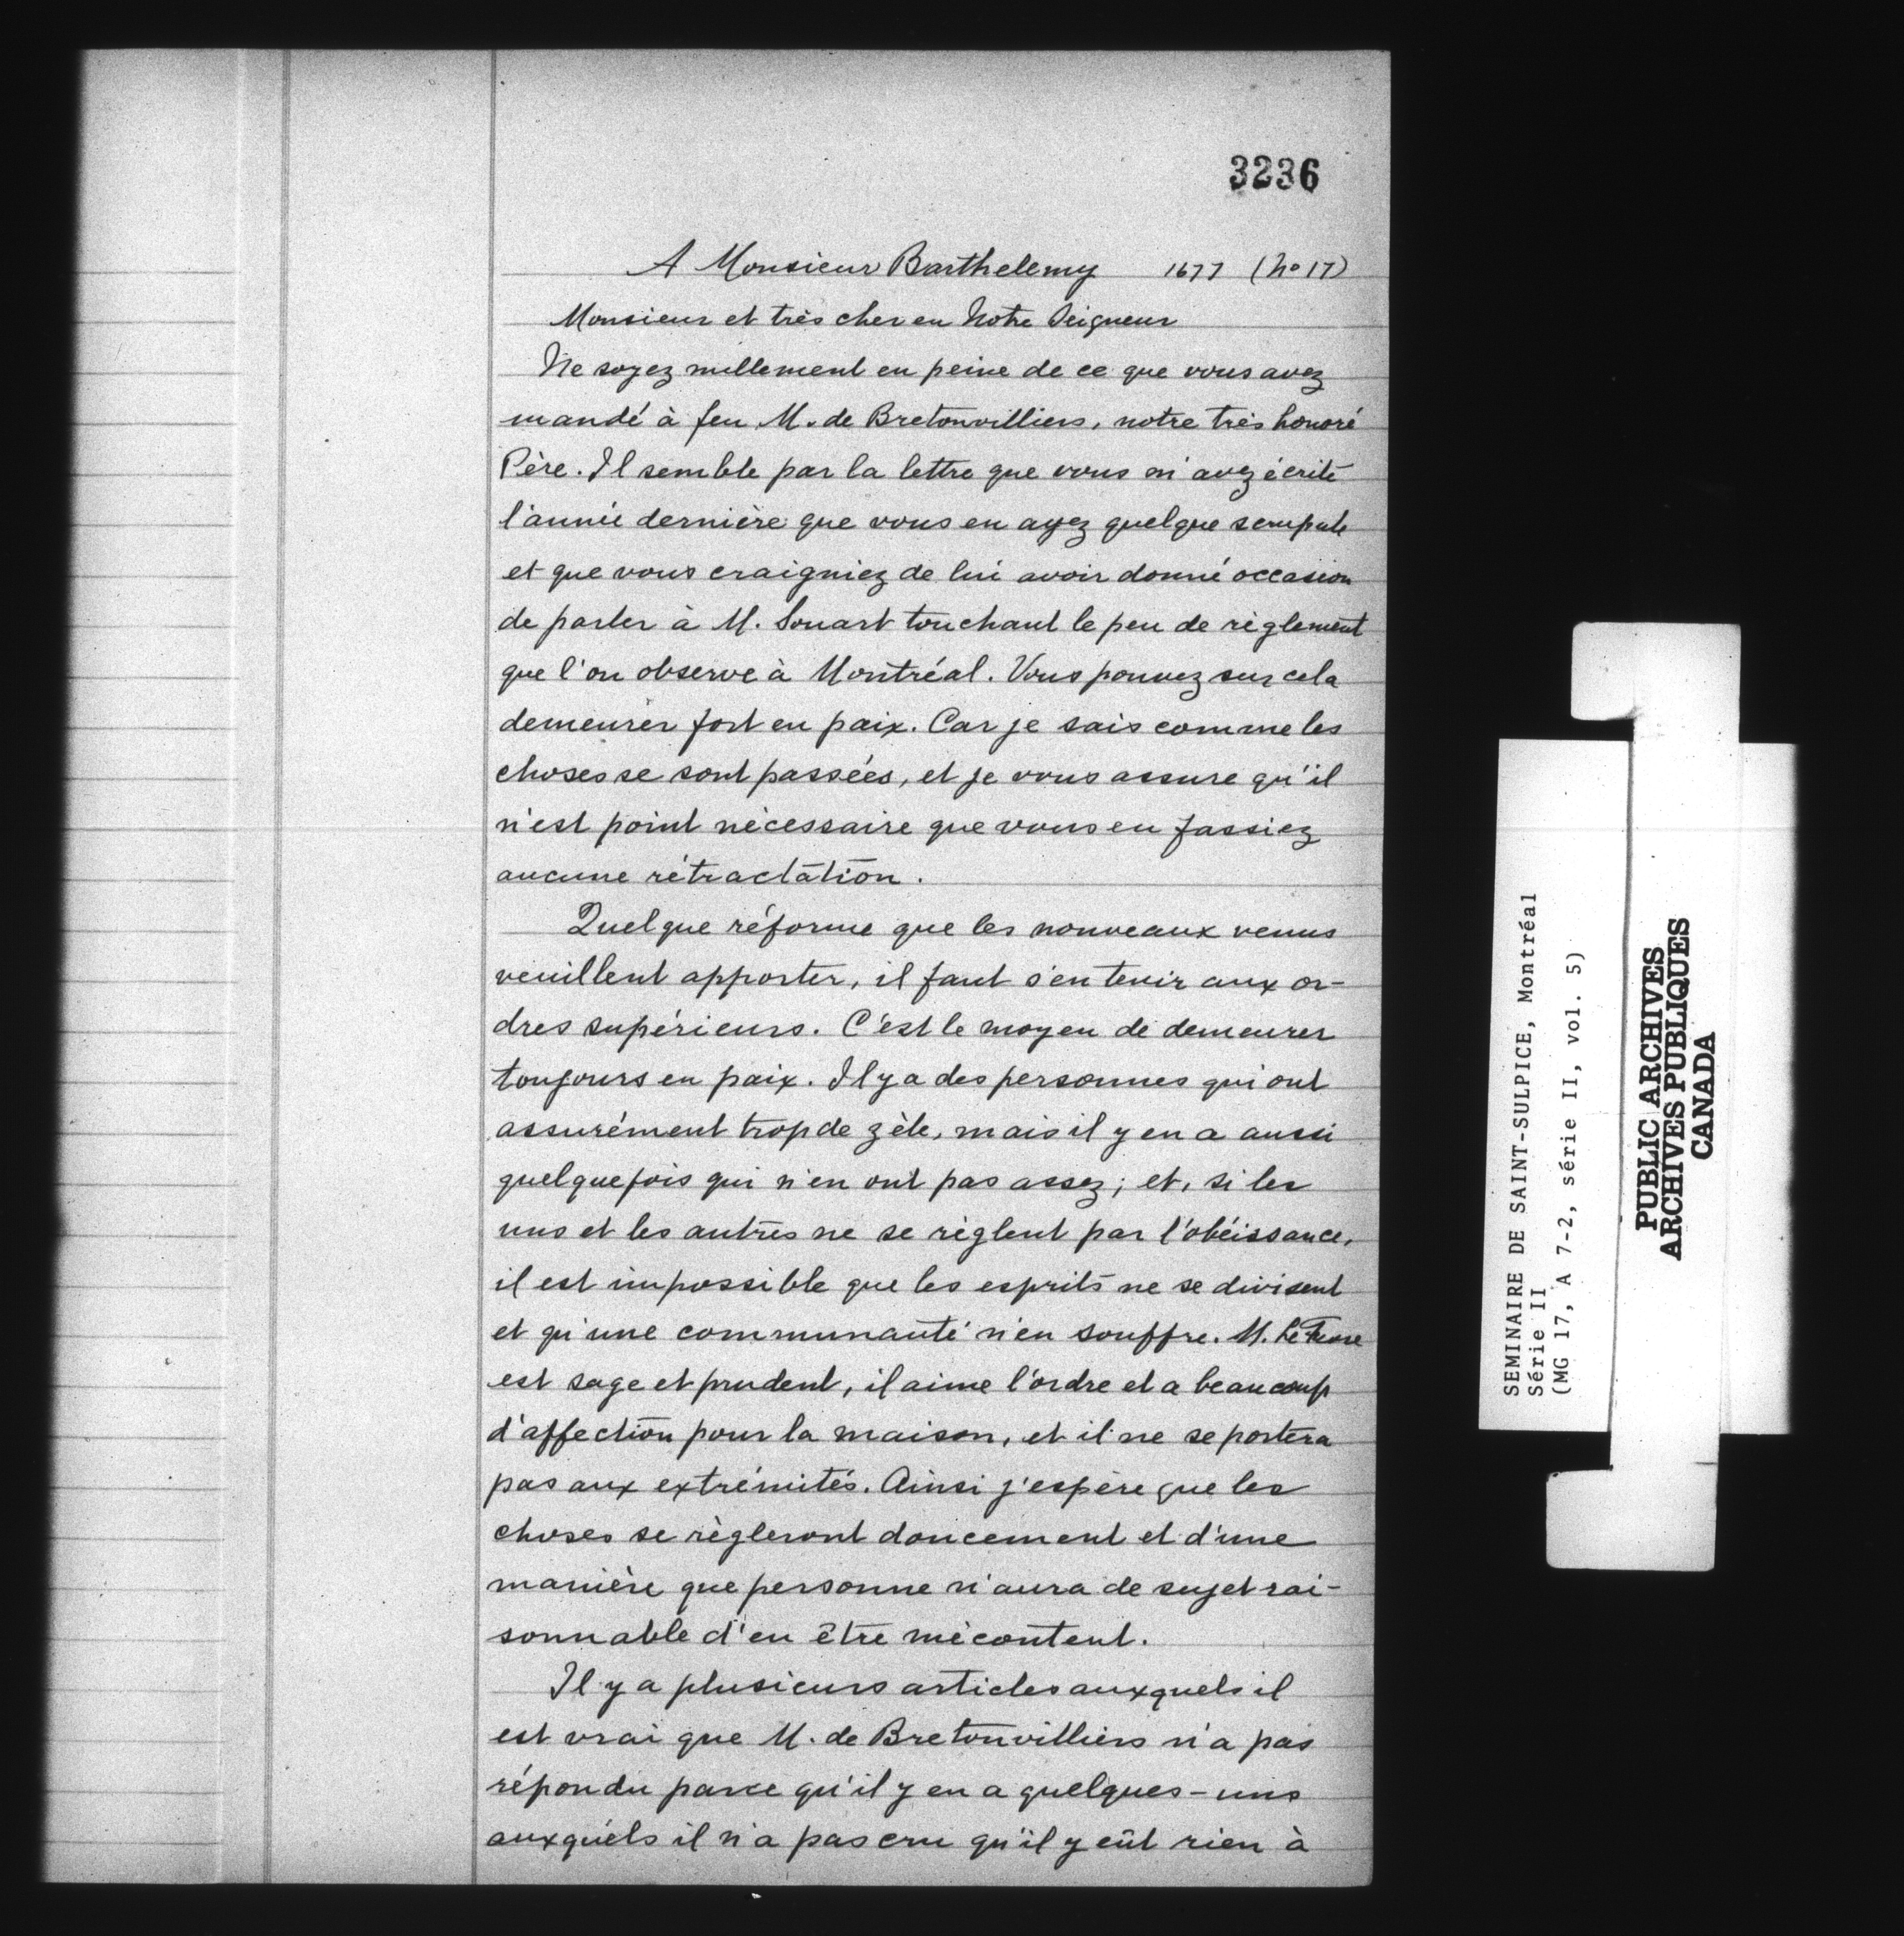 3236
A Monsieur Barthelemy 1677 (No 17)
Monsieur et très cher en Notre Seigneur
Ne soyez nullement en peine de ce que vous avez
mandé à feu M. de Bretonvilliers, notre très honoré
Père. Il semble par la lettre que vous m'avez écrite
l'année dernière que vous en ayez quelque scrupule
et que vous craigniez de lui avoir donné occasion
de parler à M. Souart touchant le peu de règlement
que l'on observe à Montréal. Vous pouvez sur cela
demeurer fort en paix. Car je sais comme les
choses se sont passées, et je vous assure qu'il
n'est point nécessaire que vous en fassiez
aucune rétractation.
Quelque réforme que les nouveaux venus
veuillent apporter, il faut s'en tenir aux or-
dres supérieurs. C'est le moyen de demeurer
toujours en paix. Il y a des personnes qui ont
assurément trop de zèle, mais il y en a aussi
quelquefois qui n'en ont pas assez; et, si les
uns et les autres ne se règlent par l'obéissance,
il est impossible que les esprits ne se divisent
et qu'une communauté n'en souffre. M. Le
est sage et prudent, il aime l'ordre et a beaucoup
d'affection pour la maison, et il ne se portera
pas aux extrémités. Ainsi j'espère que les
choses se règleront doucement et d'une
manière que personne n'aura de sujet rai-
sonnable d'en être mécontent.
Il y a plusieurs articles auxquels il
est vrai que M. de Bretonvilliers n'a pas
répondu parce qu'il y en a quelques-uns
auxquels il n'a pas cru qu'il y eût rien à
SEMINAIRE DE SAINT-SULPICE, Montréal
Série II
(MG 17, A 7-2, série II, vol. 5)
PUBLIC ARCHIVES
ARCHIVES PUBLIQUES
CANADA